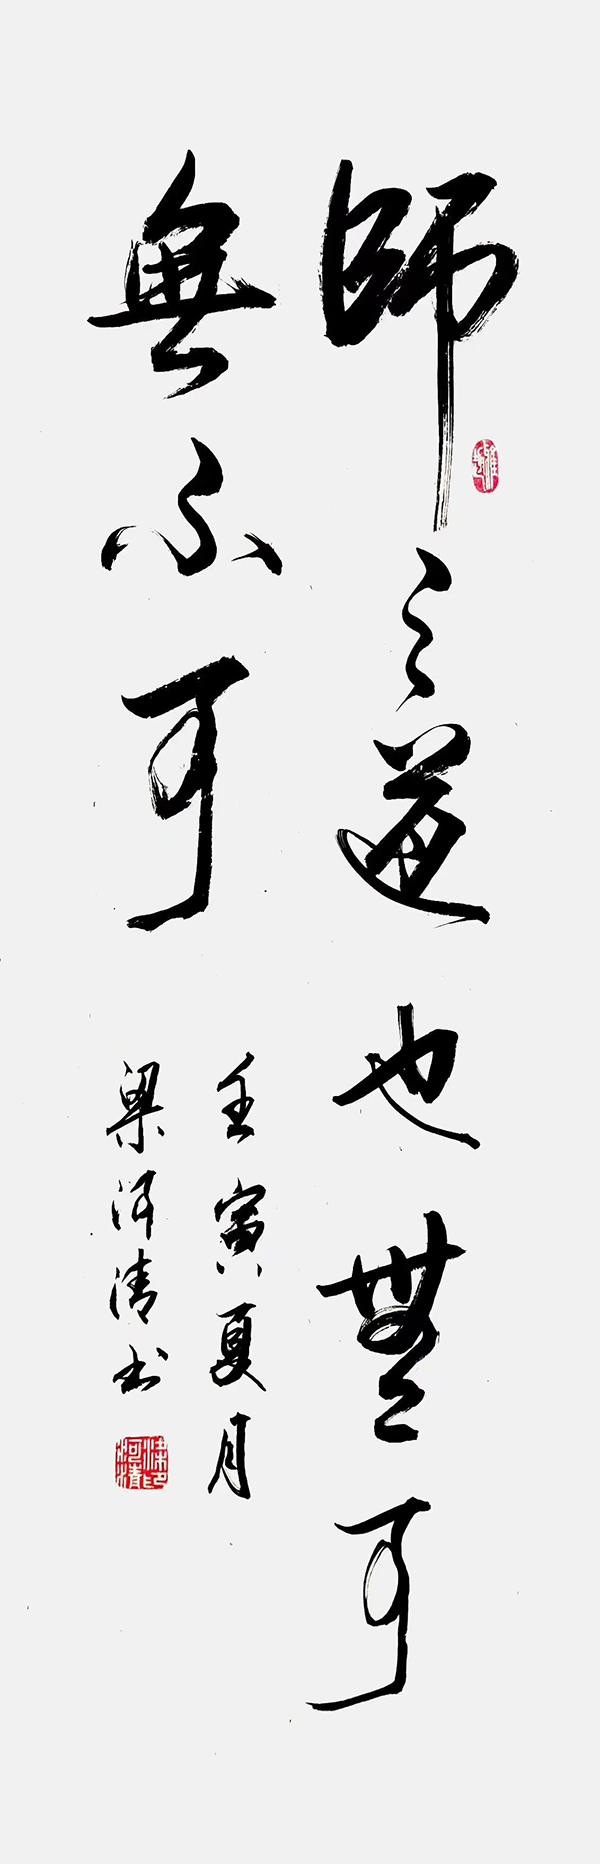 師之道也無可
無不可
壬寅夏月
梁河清书